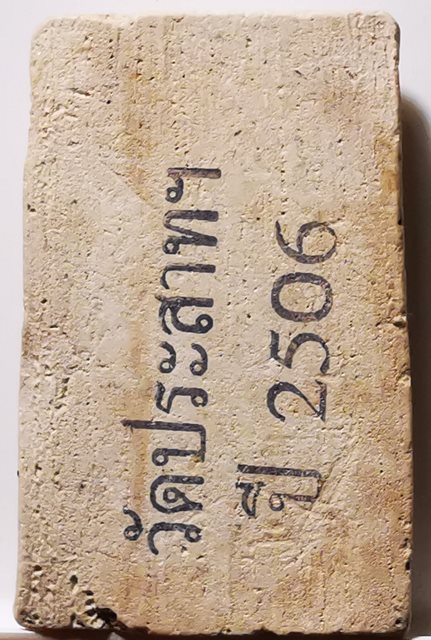 วัดประสาทฯ
ปี 2506